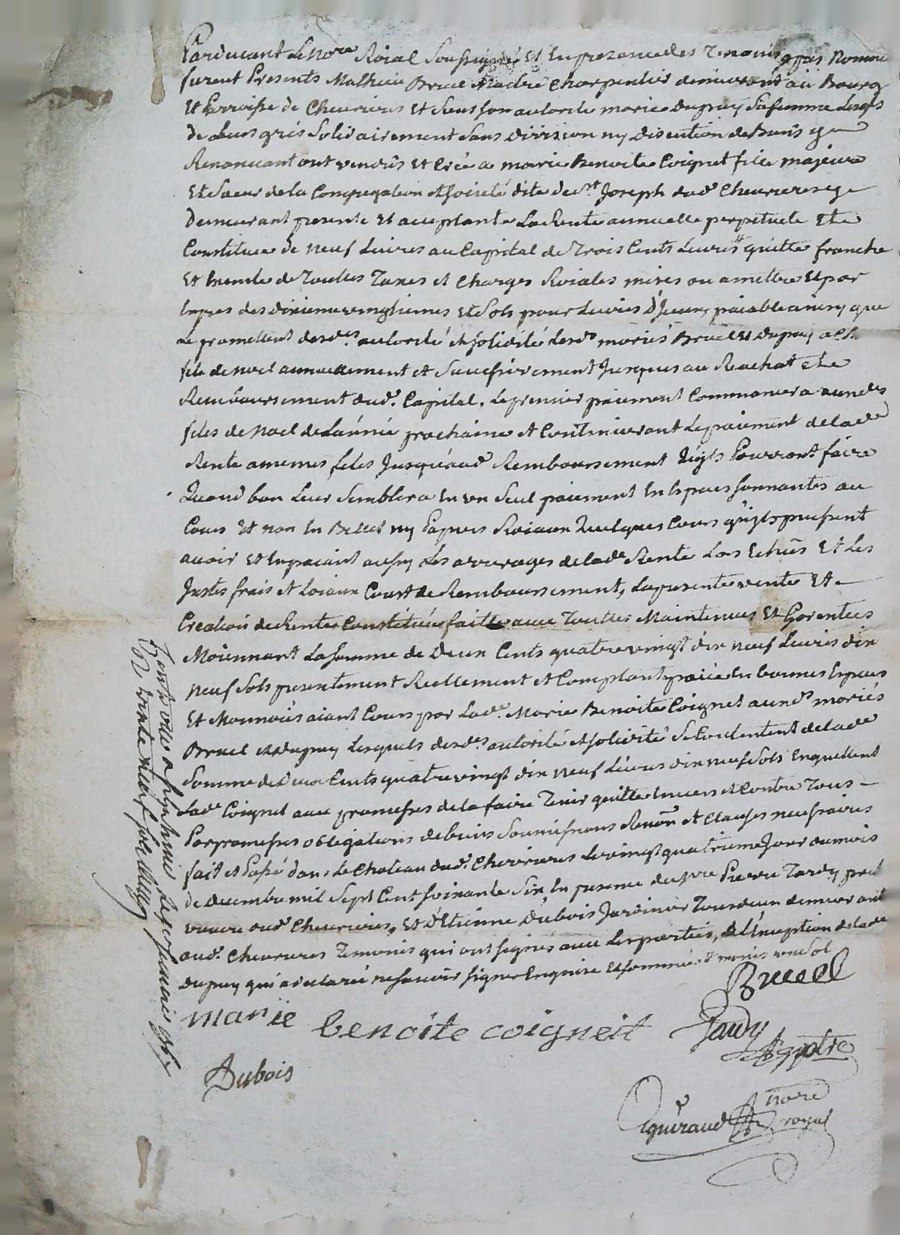 Pardevant le Nore Roial Soussigné Et En presence des Temoins apprès Només
furent Presents Mathieu Bruel Maître Charpentier demeurant au Bourg
Et Parroisse de Chevrieres Et Sous son autorité marie Dupuy Sa femme Lesqls
de Leurs grés Solidairement Sans Division ny Discution de Biens y
Renoncant ont vendus Et Créé a marie Benoite Coignet fille majeure
Et Sœur de la Congregation Et Societé dite de St Joseph dud. Chevrieres y
Demeurant presente Et acceptante La Rente annuelle perpetuele Et
Constituee de neuf Livres au Capital de Trois Cents Livres quitte franche
Et Exemte de Toutes Taxes et Charges Roiales mises ou a mettre Et par
Exprès des dixieme vingtiemes Et Sols pour Livres D'Iceux, paiable ainsy que
Le promettent desdes autorité Et Solidité Lesds mariés Bruel Et Dupuy a Ch.
fete de Noel annuellement et Successivement Jusques au Reachat Et
Remboursement dud. Capital. Le premier paiement Commancera aux des
fetes de Noel de L'année prochaine Et Continueront Le paiement de lade
Rente a memes fetes Jusqu'aud Remboursement qu'ils Pourront faire
Quand bon Leur Semblera En un Seul paiement En Especes Sonnantes au
Cours Et non En Billet ny Papiers Roiaux Quelques Cours qu'ils pussent
avoir Et En paiant aussy Les arrerages de lade Rente Lors Echûs Et Les
Justes frais Et Loiaux Cousts de Remboursement, La presente vente Et
Creation de Rente Constituée faitte avec Toutes Maintenues Et Garenties
Moiennant La Somme de Deux Cents quatre vingt dix neuf Livres dix
neuf Sols presentement Reellement Et Comptant paiée En bonnes Especes
Et Monnoies aiant Cours par Lade Marie Benoite Coignet auxds mariés
Bruel Et Dupuy Lesquels desdes autorité Et Solidité Se Contentent de lade
Somme de Deux Cents quatre vingt dix neuf Livres dix neuf Sols En quittent
Lade Coignet avec promesses de la faire Tenir quitte Envers Et Contre Tous
Par promesses obligations de biens Soumissions Renon Et Clauses necessaires
fait et Passé dans le Chateau dud. Chevrieres Le vingt quatrieme Jour du mois
de decembre mil Sept Cent Soixante Six En presence de Sre Pierre Tardy pretre
vicaire aud. Chevrieres, Et D'Etienne Dubois Jardinier Tous deux demeurant
aud. Chevrieres Temoins qui ont Signes avec Les parties, a L'Exception de lade
Dupuy qui a declaré ne Savoir Signer Enquise Et Sommée.
Bruel
marie benoite coigneit
Tardy
ptre
Dubois
nore
Eguiraud
royal